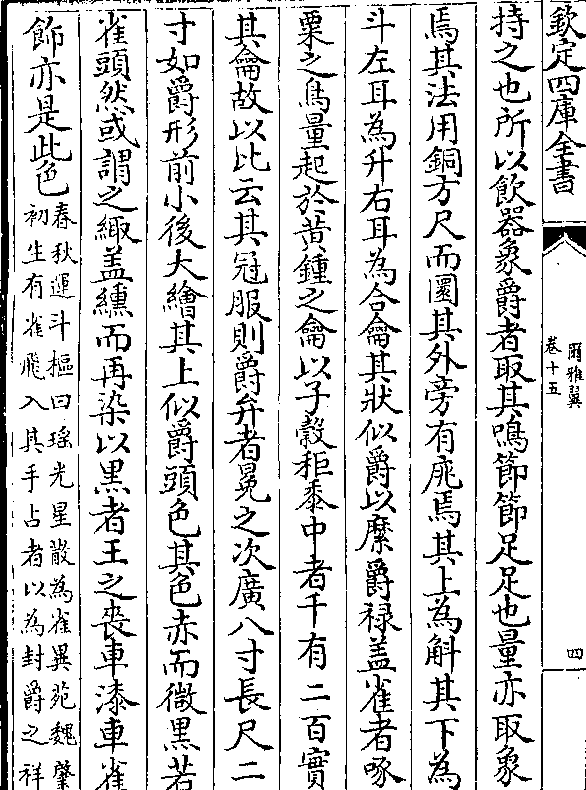 欽定四庫全書
爾雅翼
卷十五
四
持之也所以飲器象爵者取其鳴節節足足也量亦取象
焉其法用銅方尺而圜其外旁有庣焉其上為斛其下為
斗左耳為升右耳為合龠其狀似爵以縻爵禄盖雀者啄
粟之鳥量起於黄鍾之龠以子穀秬黍中者千有二百實
其龠故以比云其冠服則爵弁者冕之次廣八寸長尺二
寸如爵形前小後大繪其上似爵頭色其色赤而微黒若
雀頭然或謂之緅盖纁而再染以黒者王之喪車漆車雀
飾亦是此色
春秋運斗樞曰瑶光星散為雀異苑魏肇
初生有雀飛入其手占者以為封爵之祥